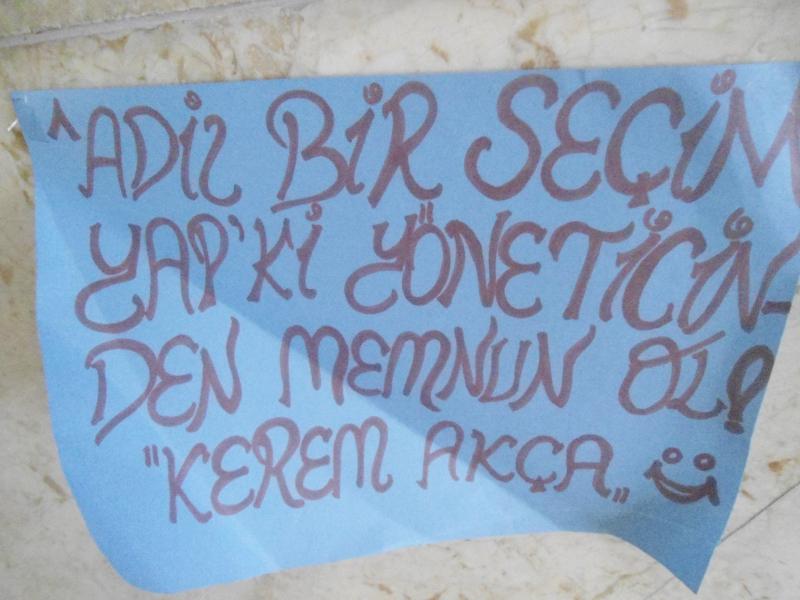 ^ADİL BİR SEÇİM
YAP'Kİ YÖNETİCİN-
DEN MEMNUN OL!
"KEREM AKÇA„